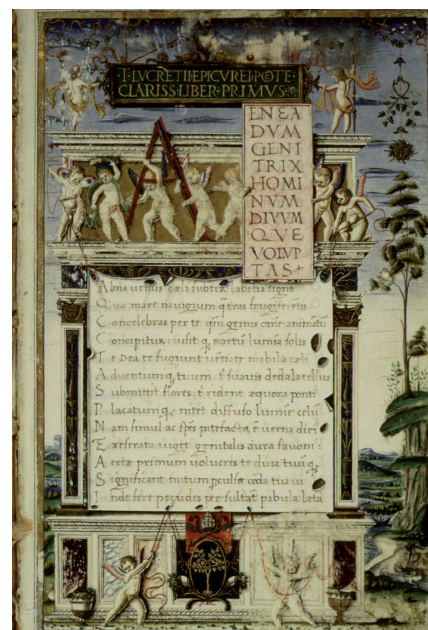 T·LVCRETII·EPICVREI·POTE·
CLARISS·LIBER·PRIMVS·
A
ENEA
DVM
GENI
TRIX
HOMI
NVM
DIVVM
QVE
VOLVP
TAS
Alma uenus cæli subter labentia signa
Quæ mare nauigerum q̃ terras frugiferentis
Concelebras per te qm̃ genus omne animantũ
Concipitur: uisit q̃ exortũ lumina solis
Te Dea te fugiunt uenti: te nubila cæli
Aduentum q̃ tuum: tibi suauis dedala tellus
Submittit flores: tibi rident æquora ponti
Placatum q̃ nitet diffuso lumine celũ
Nam simul ac spẽs patefacta ẽ uerna diei
Et reserata uiget genitalis aura fauoni
Aeriæ primum uolucres te diua tuũ q̃
Significant initum perculsæ corda tua ui
Inde feræ pecudes persultãt pabula læta